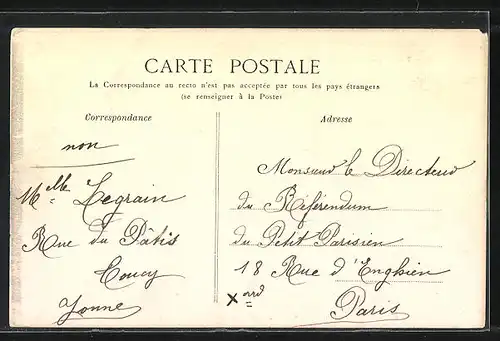 CARTE POSTALE
La Correspondance au recto n'est pas acceptée par tous les pays étrangers
(se renseigner à la Poste)
Correspondance
non
Melle Legrain
Rue du Pâtis
Toucy
Yonne
Adresse
Monsieur le Directeur
du Référendum
du Petit Parisien
18 Rue d'Enghien
Xard
Paris